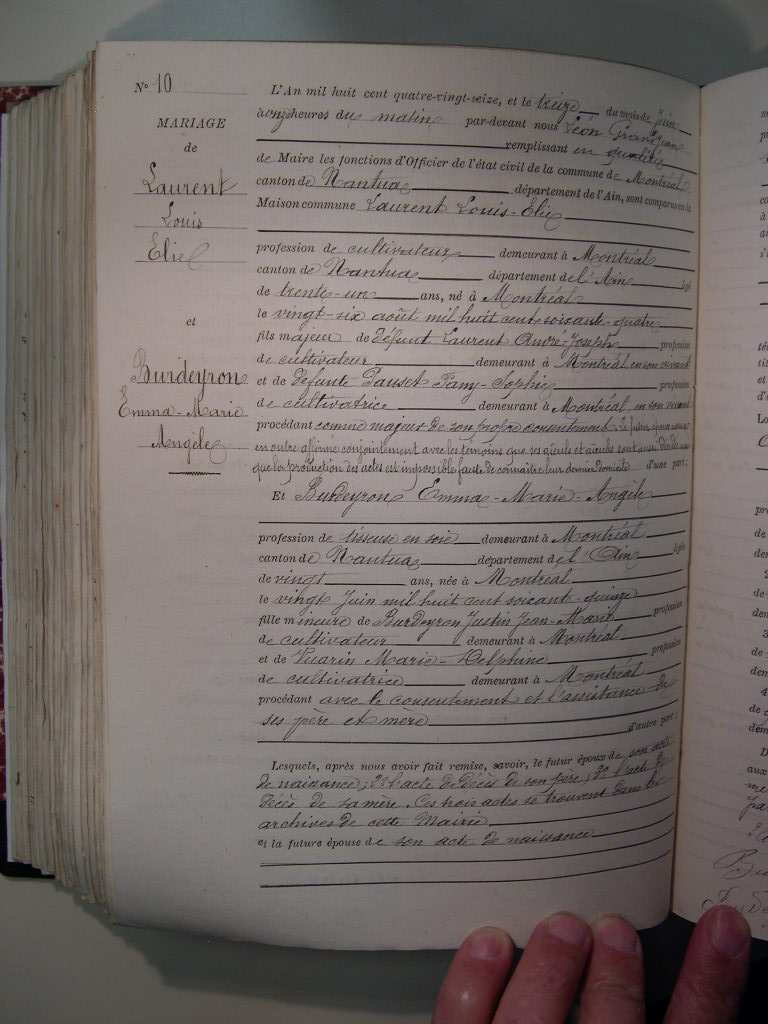 N° 10
MARIAGE
de
Laurent
Louis
Elie
et
Burdeyron
Emma-Marie
Angèle
L'An mil huit cent quatre-vingt-seize, et le treize du mois de juin
à onze heures du matin par-devant nous Léon Grandjean
remplissant en qualité
de Maire les fonctions d'Officier de l'état civil de la commune de Montréal
canton de Nantua département de l'Ain, sont comparus en la
Maison commune Laurent Louis-Elie
profession de cultivateur demeurant à Montréal
canton de Nantua département de l'Ain âgé
de trente-un ans, né à Montréal
le vingt-six août mil huit cent soixante-quatre
fils majeur de défunt Laurent André Joseph profession
de cultivateur demeurant à Montréal en son vivant
et de défunte Pauset Fany-Sophie profession
de cultivatrice demeurant à Montréal en son vivant
procédant comme majeur de son propre consentement. Le futur époux
en outre affirme conjointement avec les témoins que ses aïeuls et aïeules sont aussi décédés
que la production des actes est impossible faute de connaître leur dernier domicile d'une part;
Et Burdeyron Emma-Marie-Angèle
profession de tisseuse en soie demeurant à Montréal
canton de Nantua département de l'Ain âgée
de vingt ans, née à Montréal
le vingt Juin mil huit cent soixante-quinze
fille mineure de Burdeyron Justin Jean-Marie profession
de cultivateur demeurant à Montréal
et de Tuarin Marie-Delphine profession
de cultivatrice demeurant à Montréal
procédant avec le consentement et l'assistance de
ses père et mère d'autre part;
Lesquels, après nous avoir fait remise, savoir, le futur époux de son acte
de naissance; 2° l'acte de décès de son père; 3° l'acte de
décès de sa mère. Ces trois actes se trouvent dans les
archives de cette Mairie
et la future épouse de son acte de naissance